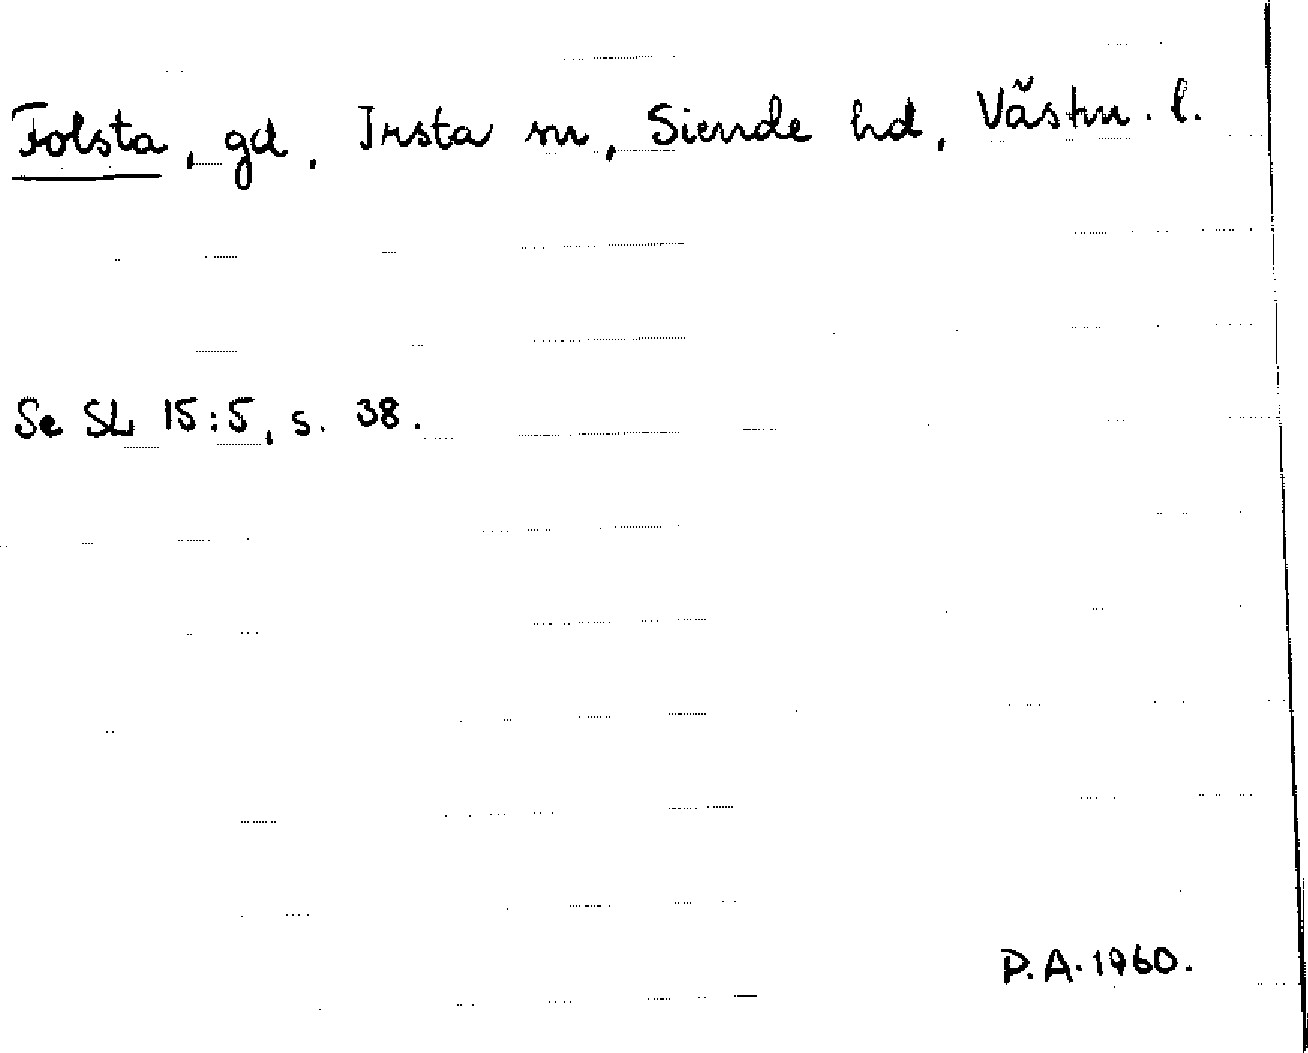 Folsta, gd. Irsta sn, Siende hd, Västm. l.
Se SL 15:5, s. 38.
P.A. 1960.